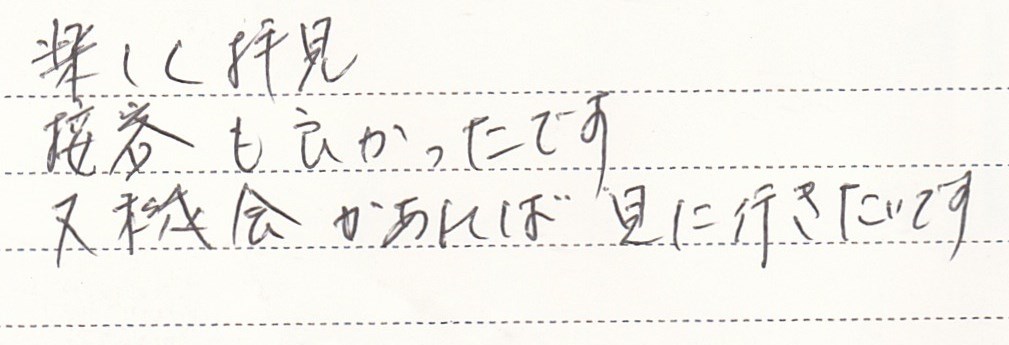 楽しく拝見
接客も良かったです
又機会があれば見に行きたいです